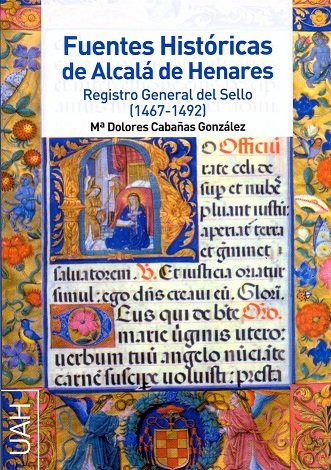 Fuentes Históricas
de Alcalá de Henares
Registro General del Sello
(1467-1492)
Mª Dolores Cabañas González
O Officiū
rate celi de
sup et nubē
pluant iusti:
aperiat terra
et gīminet
saluatorem. V. Et iusticia oriatur
simul: ego dn̄s creaui eū. Glori.
Deus qui de bte Oro.
marie uiginis utero:
uerbum tuū angelo nūciāte
carnē suscipe uoluisti: presta
UAH